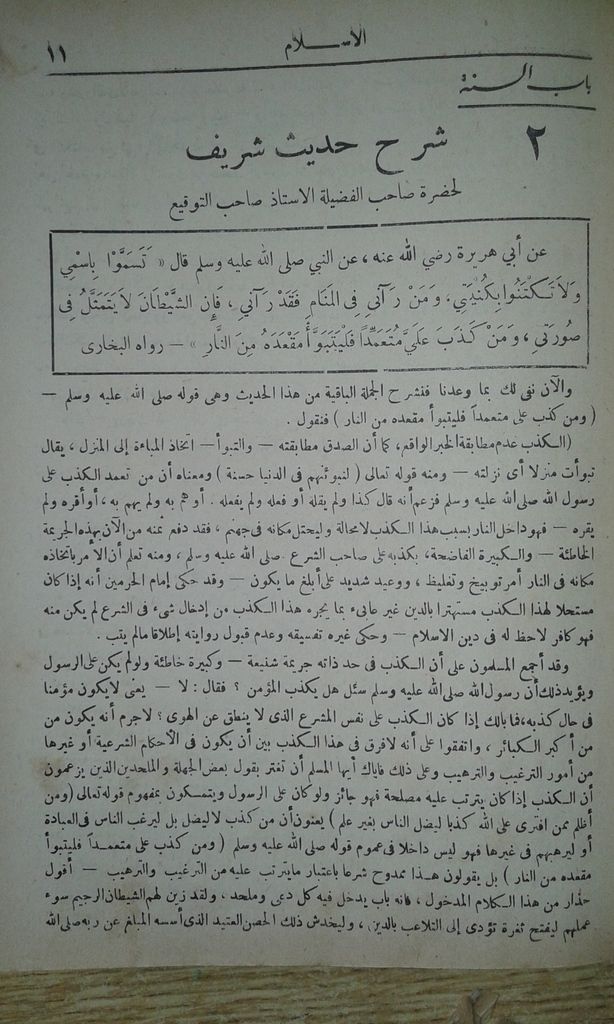 الاســـلام
١١
باب السنة
٢ شرح حديث شريف
لحضرة صاحب الفضيلة الاستاذ صاحب التوقيع
عن أبي هريرة رضي الله عنه ، عن النبي صلى الله عليه وسلم قال « تَسَمَّوْا بِاسْمِي
وَلاَ تَكْتَنُوا بِكُنْيَتِي ، وَمَنْ رَآنِى فِى الْمَنَامِ فَقَدْ رَآنِي ، فَإِن الشَّيْطَانَ لاَ يَتَمَثَّلُ فِى
صُورَتِى ، وَمَنْ كَذَبَ عَلَيَّ مُتَعَمِّدًا فَلْيَتَبَوَّأْ مَقْعَدَهُ مِنَ النَّارِ » — رواه البخارى
والآن نفى لك بما وعدنا فنشرح الجملة الباقية من هذا الحديث وهى قوله صلى الله عليه وسلم —
( ومن كذب على متعمداً فليتبوأ مقعده من النار ) فنقول .
(الكذب عدم مطابقة الخبر الواقع ، كما أن الصدق مطابقته — والتبوأ — اتخاذ المباءة إلى المنزل ، يقال
تبوأت منزلا أى نزلته — ومنه قوله تعالى ( لنبوئنهم فى الدنيا حسنة ) ومعناه أن من تعمد الكذب على
رسول الله صلى الله عليه وسلم فزعم أنه قال كذا ولم يقله أو فعله ولم يفعله . أو هم به ولم يهم به ، أو أقره ولم
يقره — فهو داخل النار بسبب هذا الكذب لامحالة وليحتل مكانه فى جهنم ، فقد دفع ثمنه من الآن بهذه الجريمة
الخاطئة — والكبيرة الفاضحة ، بكذبه على صاحب الشرع صلى الله عليه وسلم ، ومنه تعلم أن الأمر باتخاذه
مكانه فى النار أمر توبيخ وتغليظ ، ووعيد شديد على أبلغ ما يكون — وقد حكى إمام الحرمين أنه إذا كان
مستحلا لهذا الكذب مستهترا بالدين غير عابىء بما يجره هذا الكذب من إدخال شىء فى الشرع لم يكن منه
فهو كافر لاحظ له فى دين الاسلام — وحكى غيره تفسيقه وعدم قبول روايته إطلاقا مالم يتب .
وقد أجمع المسلمون على أن الكذب فى حد ذاته جريمة شنيعة — وكبيرة خاطئة ولو لم يكن على الرسول
ويؤيد ذلك أن رسول الله صلى الله عليه وسلم سئل هل يكذب المؤمن ؟ فقال : لا — يعنى لايكون مؤمنا
فى حال كذبه ، فما بالك إذا كان الكذب على نفس المشرع الذى لا ينطق عن الهوى ؟ لاجرم أنه يكون من
من أكبر الكبائر ، واتفقوا على أنه لافرق فى هذا الكذب بين أن يكون فى الأحكام الشرعية أو غيرها
من أمور الترغيب والترهيب وعلى ذلك فاياك أيها المسلم أن تغتر بقول بعض الجهلة والملحدين الذين يزعمون
أن الكذب إذا كان يترتب عليه مصلحة فهو جائز ولو كان على الرسول ويتمسكون بمفهوم قوله تعالى (ومن
أظلم ممن افترى على الله كذبا ليضل الناس بغير علم ) يعنون أن من كذب لا ليضل بل ليرغب الناس فى العبادة
أو ليرهبهم فى غيرها فهو ليس داخلا فى عموم قوله صلى الله عليه وسلم ( ومن كذب على متعمداً فليتبوأ
مقعده من النار ) بل يقولون هذا ممدوح شرعا باعتبار مايترتب عليه من الترغيب والترهيب — أقول
حذار من هذا الكلام المدخول ، فانه باب يدخل فيه كل دعى وملحد ، ولقد زين لهم الشيطان الرجيم سوء
عملهم ليفتح ثغرة تؤدى إلى التلاعب بالدين ، وليخدش ذلك الحصن العتيد الذى أسسه المبلغ عن ربه صلى الله